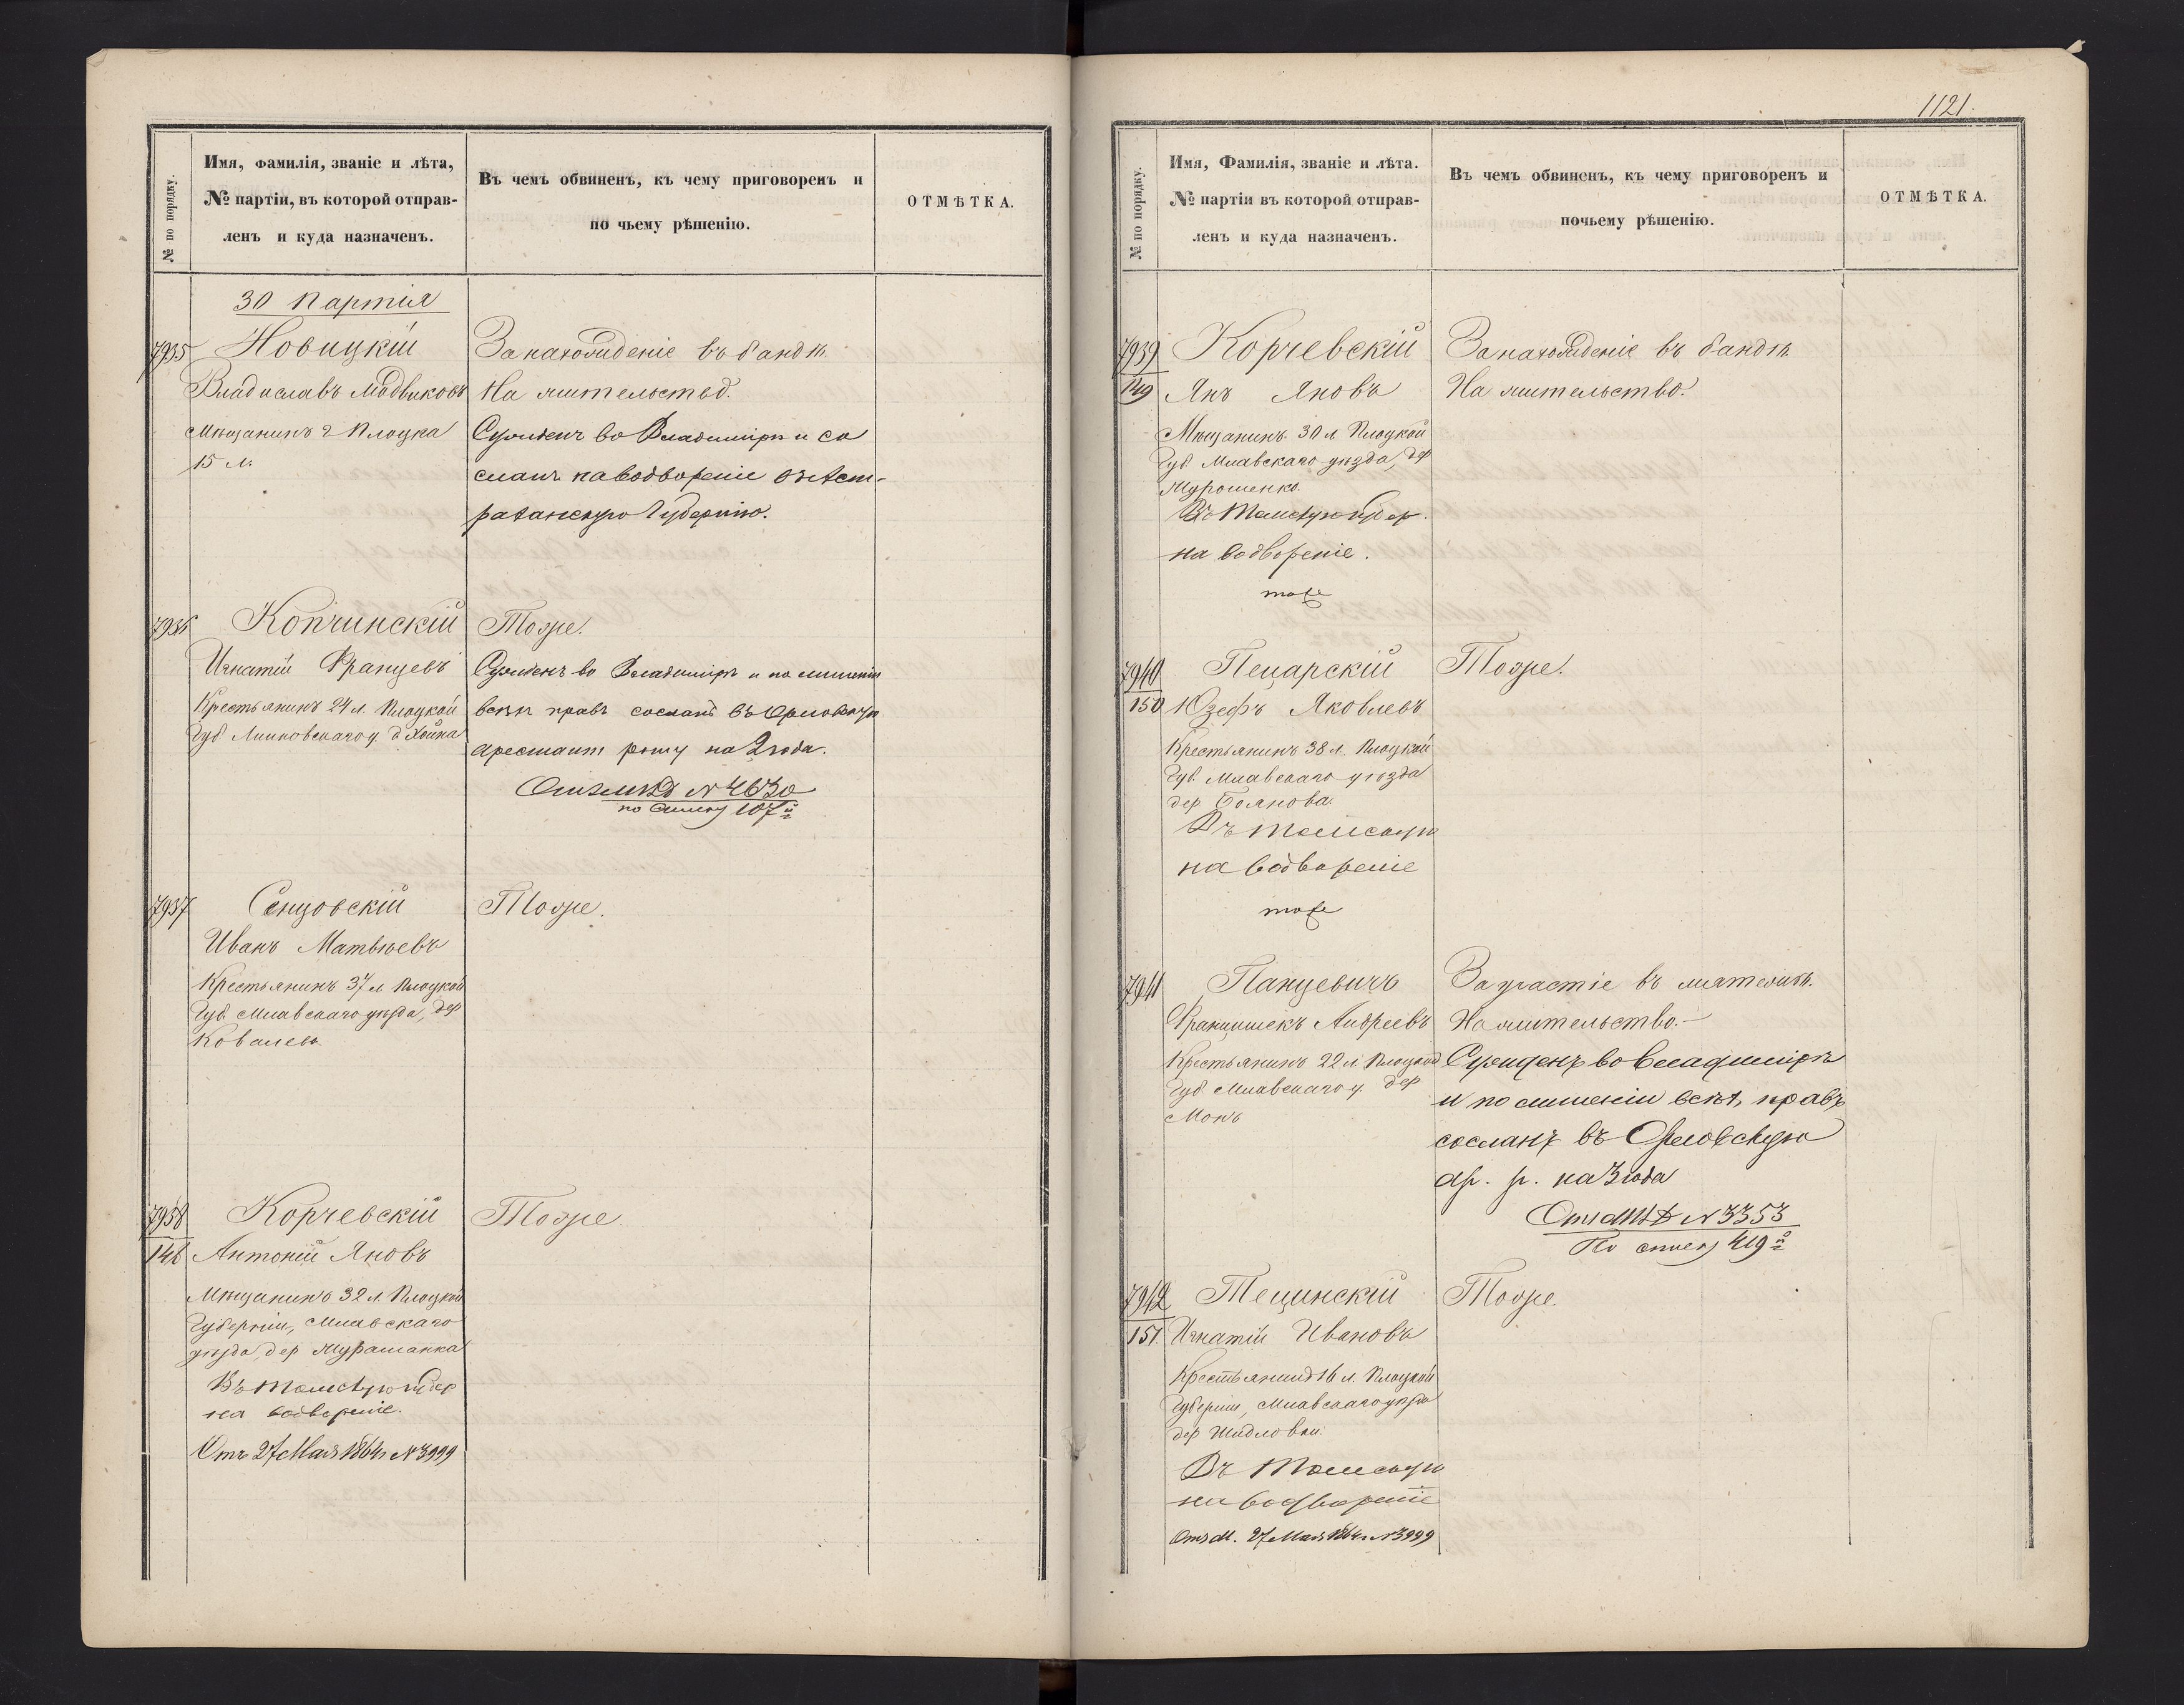 № по порядку.
Имя, Фамилія, званіе и лѣта,
№ партіи, въ которой отправ-
ленъ и куда назначенъ.
Въ чемъ обвиненъ, къ чему приговоренъ и
по чьему рѣшенію.
ОТМѢТКА.
30 партія
7935 Новицкій
Владиславъ
Мѣщанинъ г Плоцка
15 л.
За нахожденіе въ бандѣ.
На жительство.
Сужденъ во Владимірѣ и со
сланъ на водвореніе въ Аст-
раханскую Губернію.
7936 Копчинскій
Игнатій Францевъ
Крестьянинъ 24 л. Плоцкой
Губ. Липновскаго у. д
Тоже.
Сужденъ во Владимірѣ и по лишеніи
всѣхъ правъ сосланъ въ Орловскую
арестант роту на 2 года.
№ 4630
по списку 107й
7937 Сенцовскій
Иванъ Матвѣевъ
Крестьянинъ 37 л Плоцкой
Губ. Млавскаго уѣзда, дер
Ковалев
Тоже.
7938 Корчевскій
148 Антоній Яновъ
Мѣщанинъ 32 л. Плоцкой
Губерніи, Млавскаго
уѣзда, дер Мурашанка
Въ Томскую губер
на водвореніе.
Отъ 27 Мая 1864 г № 3999
Тоже.
1121.
№ по порядку.
Имя, Фамилія, званіе и лѣта.
№ партіи въ которой отправ-
ленъ и куда назначенъ.
Въ чемъ обвиненъ, къ чему приговоренъ и
почьему рѣшенію.
ОТМѢТКА.
7939 Корчевскій
149 Янъ Яновъ
Мѣщанинъ 30 л Плоцкой
Губ Млавскаго уѣзда, дер
Мурошенко.
Въ Томскую губер.
на водвореніе.
тоже
За нахожденіе въ бандѣ.
На жительство.
7940 Пецарскій
150 Юзефъ Яковлевъ
Крестьянинъ 38 л. Плоцкой
Губ. Млавскаго уѣзда
дер Боянова.
Въ Томскую
на водвореніе
тоже
Тоже.
7941 Панцевичъ
Францишекъ Андреевъ
Крестьянинъ 22 л. Плоцкой
Губ. Млавскаго у. дер
Монь
За участіе въ мятежѣ.
На жительство.-
Сужденъ во Владимірѣ
и по лишеніи всѣхъ правъ
сосланъ въ Орловскую
ар. р. на 3 года
№ 3353
По списку 419й
7942 Тецинскій
151 Игнатій Ивановъ
Крестьянинъ 16 л. Плоцкой
Губерніи, Млавскаго уѣзда
дер Шидловки.
Въ Томскую
на водвореніе
27 Мая 1864 г № 3999
Тоже.